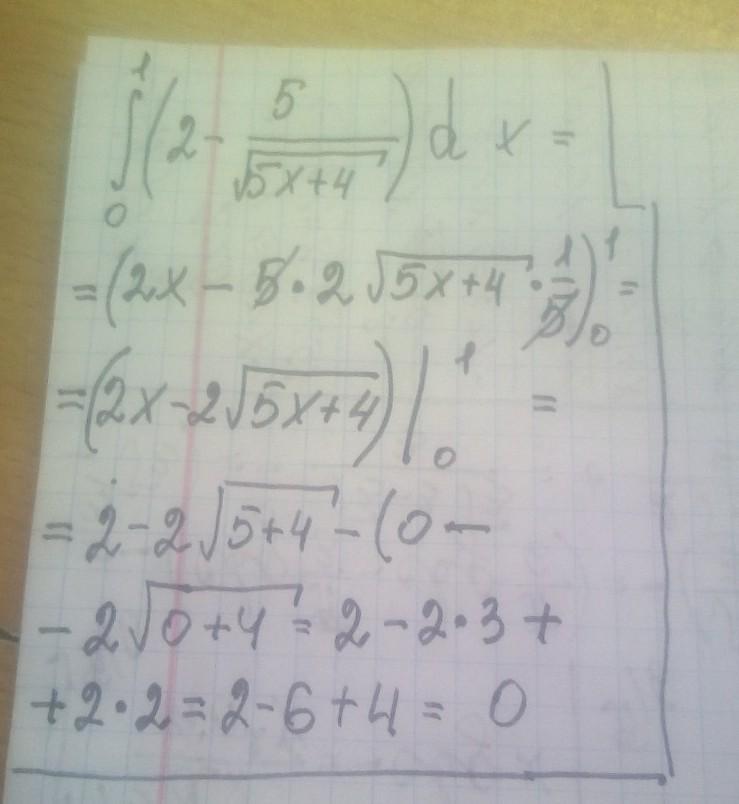 ∫₀¹(2 - 5/√(5x+4)) d x =
= (2x - 5·2√(5x+4)·1/5)₀¹ =
= (2x-2√(5x+4))|₀¹ =
= 2-2√(5+4) - (0 -
- 2√(0+4) = 2-2·3 +
+2·2 = 2-6+4 = 0